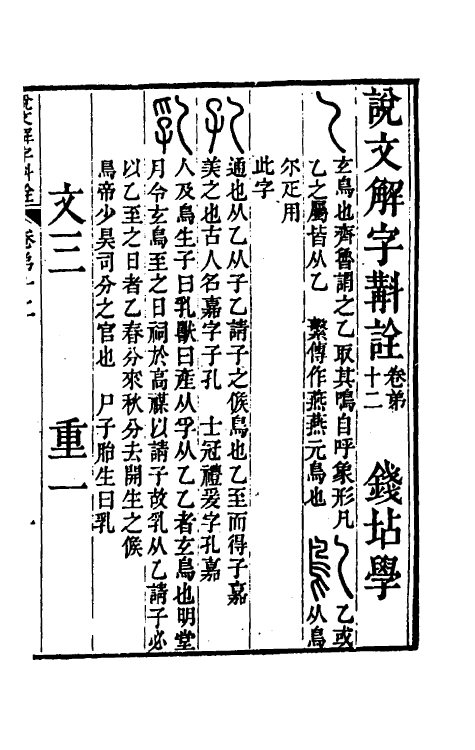 說文解字斠詮 卷弟十二 錢坫學
玄鳥也齊魯謂之乙取其鳴自呼象形凡
乙之屬皆从乙 繫傳作燕燕元鳥也
乙或
从鳥
尒疋用
此字
通也从乙从子乙請子之候鳥也乙至而得子嘉
美之也古人名嘉字子孔 士冠禮爰字孔嘉
人及鳥生子曰乳獸曰產从孚从乙乙者玄鳥也明堂
月令玄鳥至之日祠於高禖以請子故乳从乙請子必
以乙至之日者乙春分來秋分去開生之候
鳥帝少昊司分之官也 尸子胎生曰乳
文三 重一
說文解字斠詮 卷弟十二 一